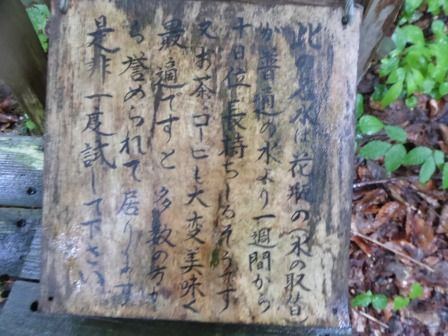 此の名水は花瓶の水の取替
が普通の水より一週間から
十日位長持ちしるそうです
又お茶、コーヒも大変美味く
最適ですと多数の方か
ら誉められて居ります
是非一度試して下さい